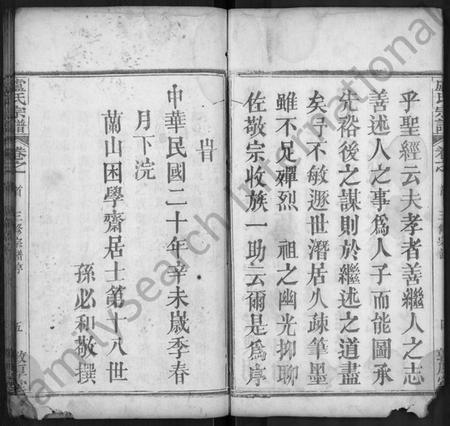 乎聖經云夫孝者善繼人之志
善述人之事爲人子而能圖承
先裕後之謀則於繼述之道盡
矣予不敏遯世潛居久疎筆墨
雖不足殫烈 祖之幽光抑聊
佐敬宗收族一助云爾是爲序
旹
中華民國二十年辛未歲季春
月下浣
蘭山困學齋居士第十八世
孫必和敬撰
盧氏宗譜
卷之首
三修宗譜序
五
敦厚堂
盧氏宗譜
FamilySearch International